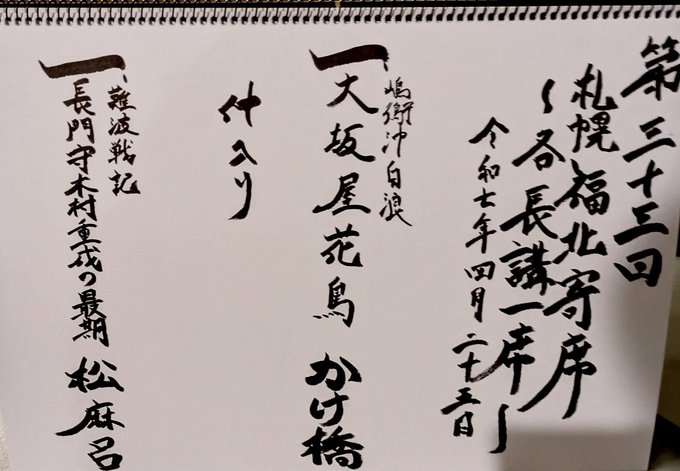 第三十三回
札幌福北寄席
〜各長講一席〜
令和七年四月二十五日
嶋鵆沖白浪
一、大坂屋花鳥 かけ橋
仲入り
難波戦記
一、長門守木村重成の最期 松麻呂